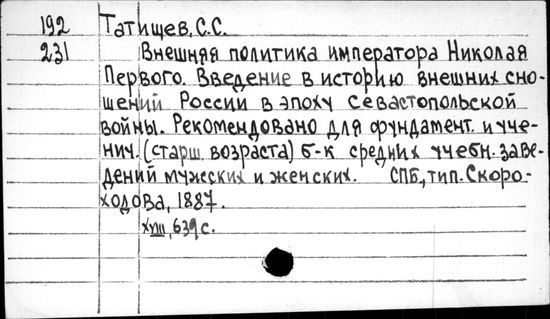 192 Татищев, С.С.
231 Внешняя политика императора Николая
Первого. Введение в историю внешних сно-
шений России в эпоху Севастопольской
войны. Рекомендовано для фундамент. и уче-
нич. (старш. возраста) б-к средних учебн. заве-
дений мужских и женских. СПБ, тип. Скоро-
ходова, 1887.
XVIII, 639 с.